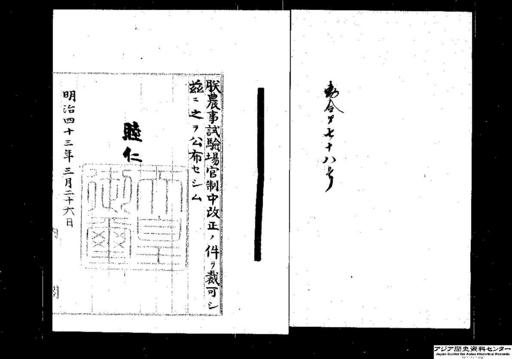 勅令第七十八号
朕農事試驗場官制中改正ノ件ヲ裁可シ
茲ニ之ヲ公布セシム
睦仁
天皇御璽
明治四十三年三月二十六日
アジア歴史資料センター
Japan Center for Asian Historical Records